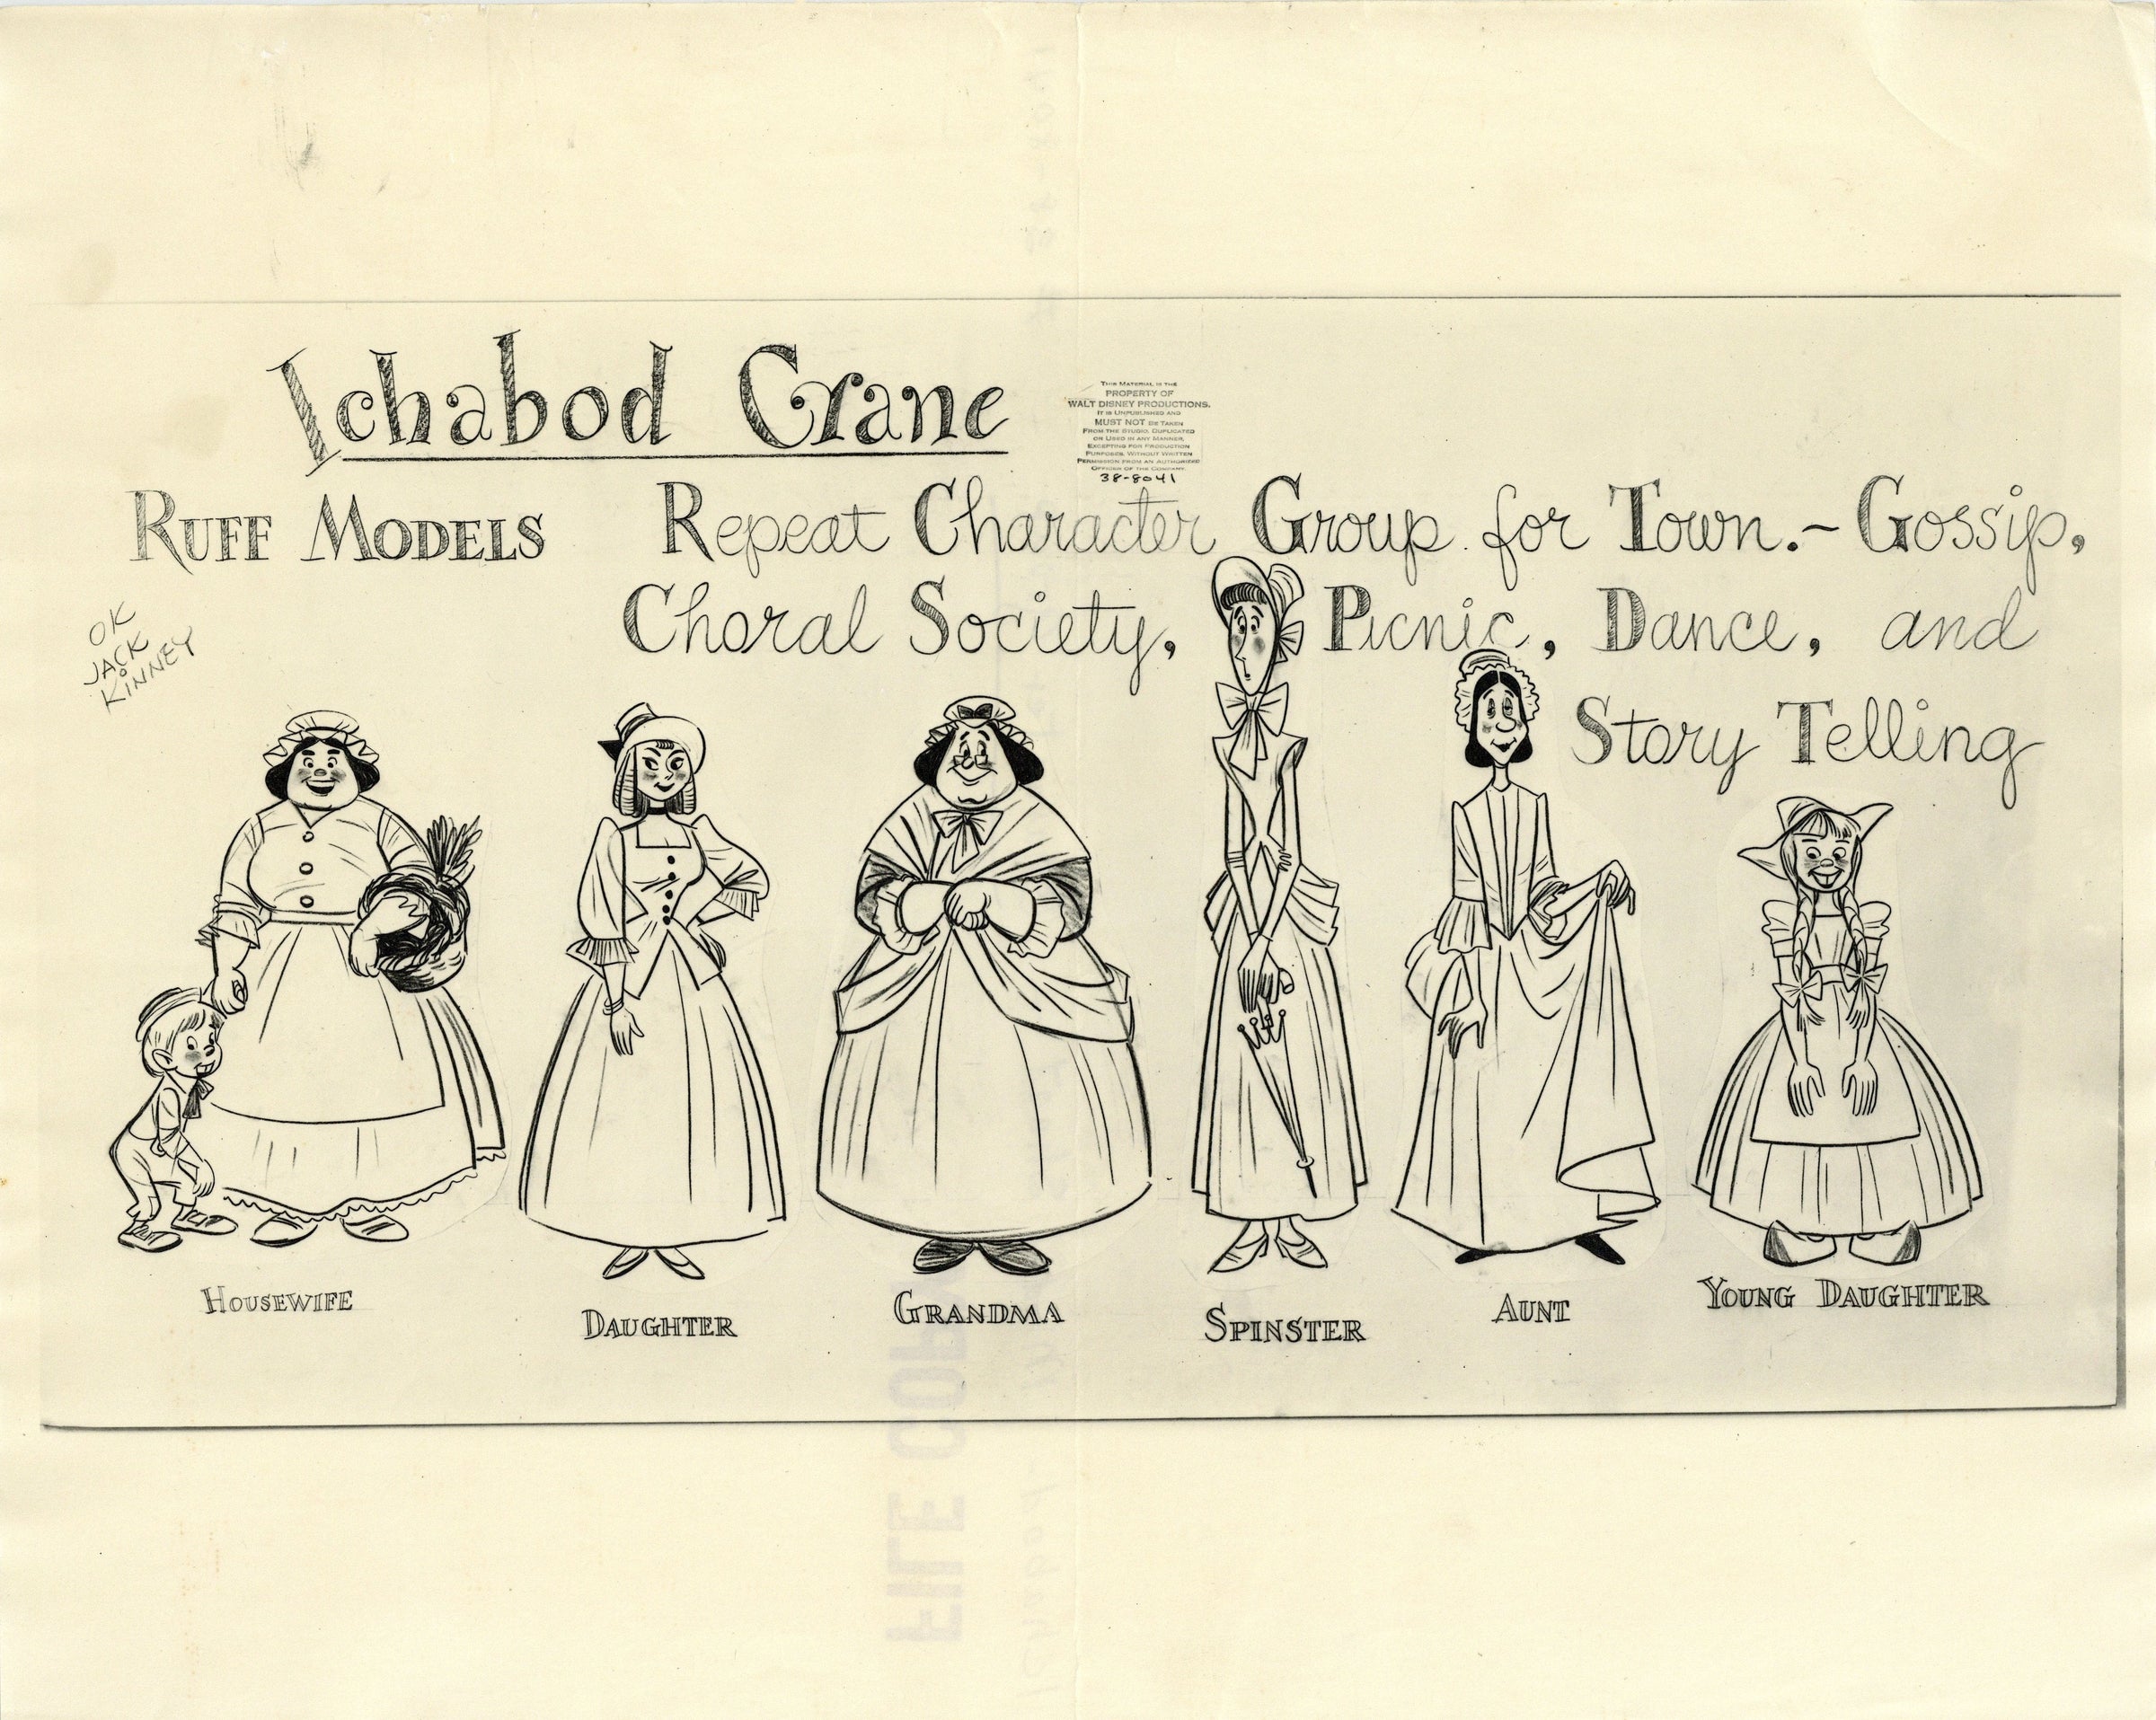 Ichabod Crane
THIS MATERIAL IS THE
PROPERTY OF
WALT DISNEY PRODUCTIONS.
IT IS UNPUBLISHED AND
MUST NOT BE TAKEN
FROM THE STUDIO, DUPLICATED
OR USED IN ANY MANNER,
EXCEPTING FOR PRODUCTION
PURPOSES, WITHOUT WRITTEN
PERMISSION FROM AN AUTHORIZED
OFFICER OF THE COMPANY.
38-8041
RUFF MODELS Repeat Character Group for Town.- Gossip,
Choral Society, Picnic, Dance, and
Story Telling
OK
JACK
KINNEY
HOUSEWIFE
DAUGHTER
GRANDMA
SPINSTER
AUNT
YOUNG DAUGHTER
FILE COPY